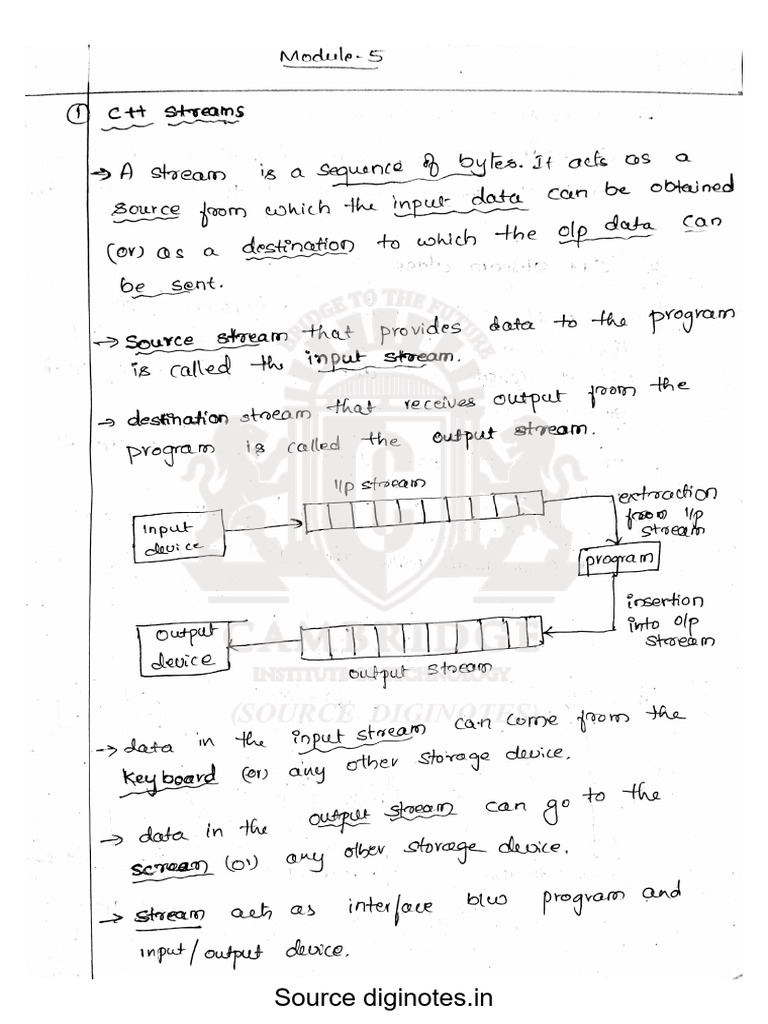 Module-5
① C++ Streams
→ A stream is a sequence of bytes. It acts as a
source from which the input data can be obtained
(or) as a destination to which the o/p data can
be sent.
BRIDGE TO THE FUTURE
→ Source stream that provides data to the program
is called the input stream.
→ destination stream that receives output from the
program is called the output stream.
I/p stream
input
device
extraction
from I/p
stream
program
insertion
into O/p
stream
output
device
output stream
CAMBRIDGE
INSTITUTE OF TECHNOLOGY
(SOURCE DIGINOTES)
→ data in the input stream can come from the
keyboard (or) any other storage device.
→ data in the output stream can go to the
screen (or) any other storage device.
→ stream acts as interface b/w program and
input/output device.
Source diginotes.in